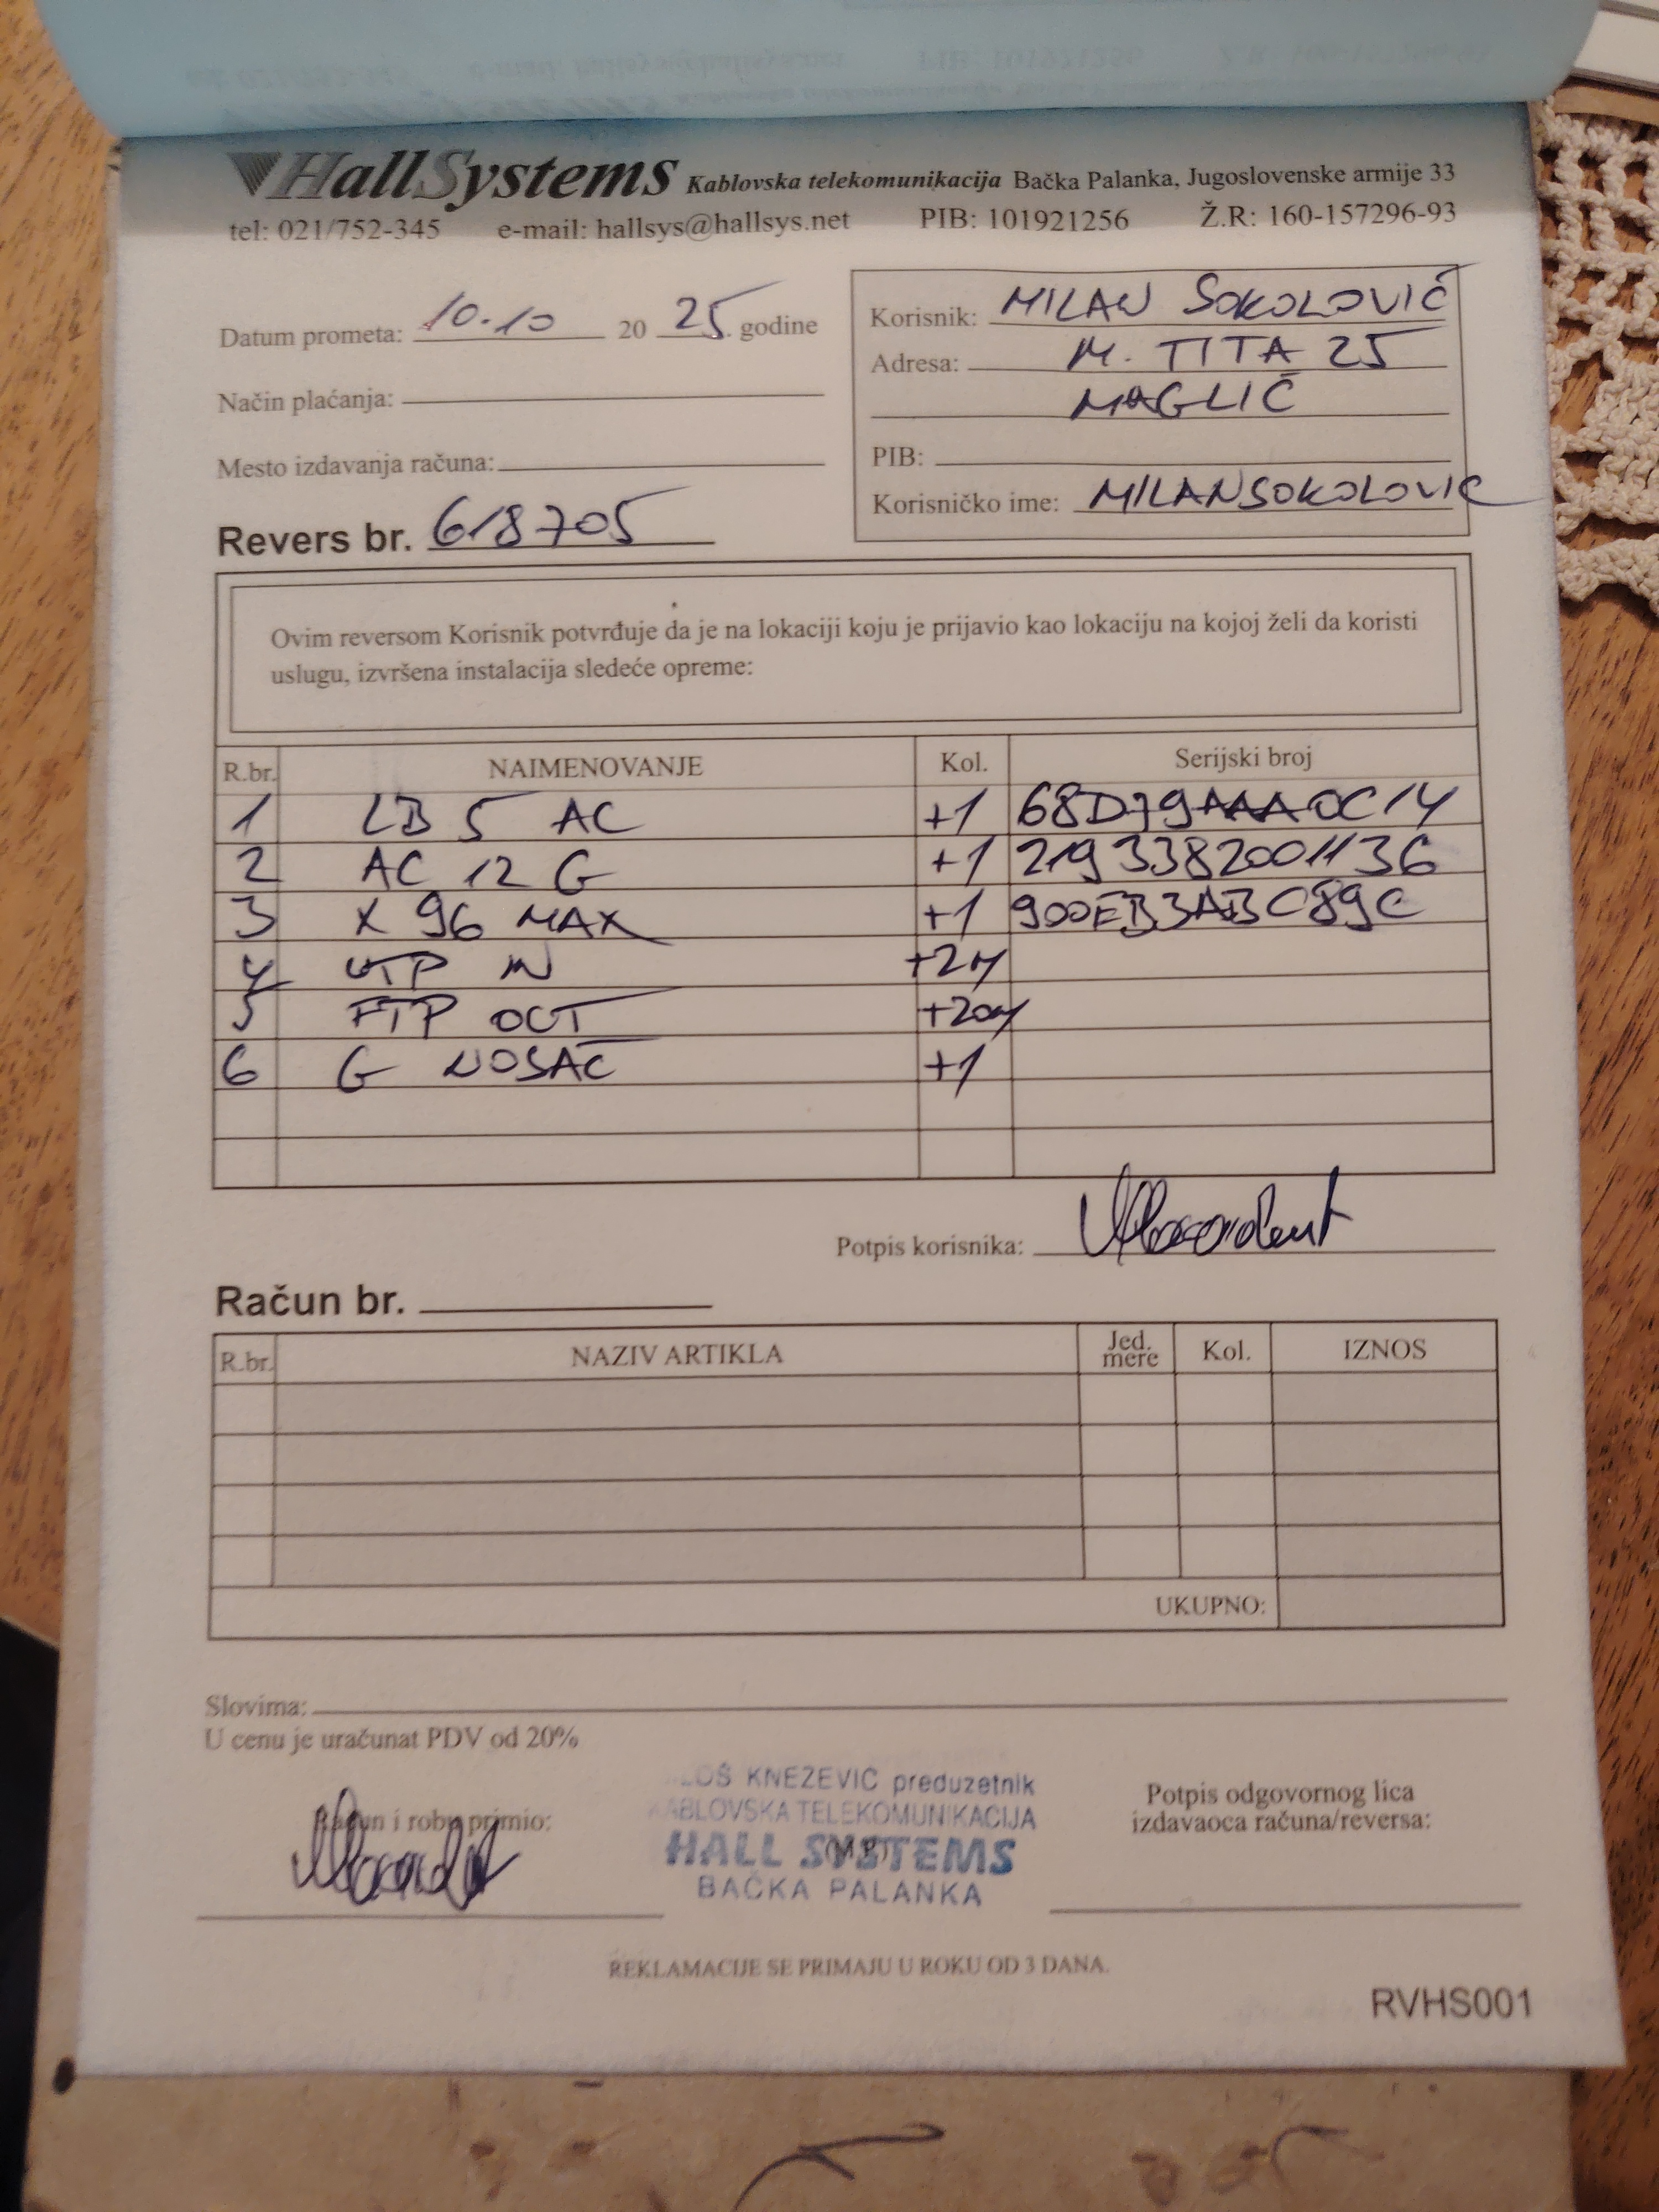 HallSystems Kablovska telekomunikacija Bačka Palanka, Jugoslovenske armije 33
tel: 021/752-345 e-mail: hallsys@hallsys.net PIB: 101921256 Ž.R: 160-157296-93
Datum prometa: 10.10 20 25. godine
Način plaćanja:
Mesto izdavanja računa:
Revers br. 618705
Korisnik: MILAN SOKOLOVIĆ
Adresa: M. TITA 25
MAGLIĆ
PIB:
Korisničko ime: MILANSOKOLOVIC
Ovim reversom Korisnik potvrđuje da je na lokaciji koju je prijavio kao lokaciju na kojoj želi da koristi
uslugu, izvršena instalacija sledeće opreme:
R.br. NAIMENOVANJE Kol. Serijski broj
1 LB 5 AC +1 68D79AAA0C14
2 AC 12 G +1 2193382001136
3 X 96 MAX +1 900EB3ABC89C
4 UTP IN +2m
5 FTP OUT +20m
6 G NOSAČ +1
Potpis korisnika:
Račun br.
R.br. NAZIV ARTIKLA Jed. mere Kol. IZNOS
UKUPNO:
Slovima:
U cenu je uračunat PDV od 20%
Račun i robu primio:
KNEŽEVIĆ preduzetnik
KABLOVSKA TELEKOMUNIKACIJA
HALL SYSTEMS
BAČKA PALANKA
(M.P.)
Potpis odgovornog lica
izdavaoca računa/reversa:
REKLAMACIJE SE PRIMAJU U ROKU OD 3 DANA.
RVHS001